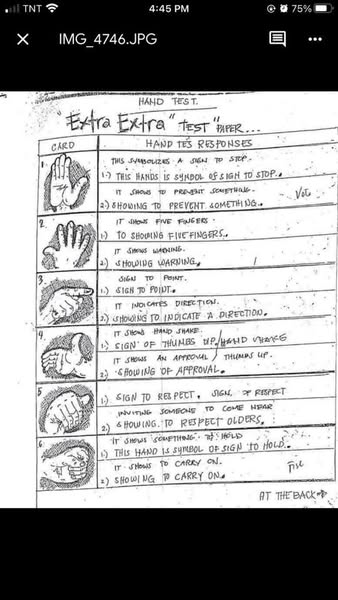 TNT
4:45 PM
75%
IMG_4746.JPG
HAND TEST.
"Extra Extra" "TEST" PAPER...
CARD
HAND TES RESPONSES
1.
THIS SYMBOLIZES A SIGN TO STOP.
1.) THIS HANDS IS SYMBOL OF SIGN TO STOP.
IT SHOWS TO PREVENT SOMETHING.
2) SHOWING TO PREVENT SOMETHING.
2.
IT SHOWS FIVE FINGERS.
1) TO SHOWING FIVE FINGERS.
IT SHOWS WARNING.
2) SHOWING WARNING.
3.
SIGN TO POINT.
1.) SIGN TO POINT.
IT INDICATES DIRECTION.
2.) SHOWING TO INDICATE A DIRECTION.
4.
IT SHOWS HAND SHAKE.
1.) SIGN OF THUMBS UP./HAND SHAKE
IT SHOWS AN APPROVAL / THUMBS UP.
2.) SHOWING OF APPROVAL.
5.
1.) SIGN TO RESPECT. SIGN OF RESPECT
INVITING SOMEONE TO COME NEAR
2.) SHOWING TO RESPECT OLDERS.
6.
IT SHOWS SOMETHING TO HOLD
1.) THIS HAND IS SYMBOL OF SIGN TO HOLD.
IT SHOWS TO CARRY ON.
2) SHOWING TO CARRY ON.
AT THE BACK